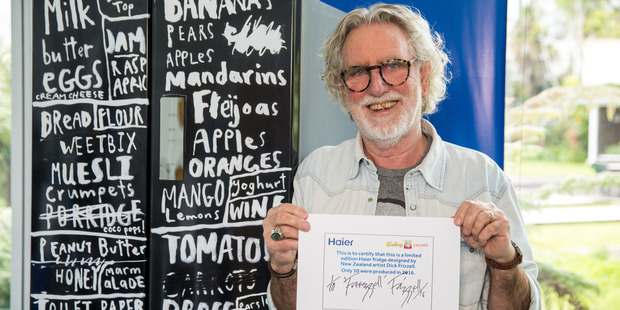 Milk
butter
EGGS
CREAM CHEESE
JAM
RASP
APRIC
BREAD
FLOUR
WEETBIX
MUESLI
Crumpets
PORRIDGE
COCO POPS!
PEANUT Butter
HONEY
marm
ALADE
TOILET PAPER
BANANAS
PEARS
APPLES
Mandarins
Feijoas
Apples
ORANGES
MANGO
Lemons
yoghurt
WINE
TOMATO
CARROTS
Haier
This is to certify that this is a limited
edition Haier fridge designed by
New Zealand artist Dick Frizzell.
Only 10 were produced in 2016.